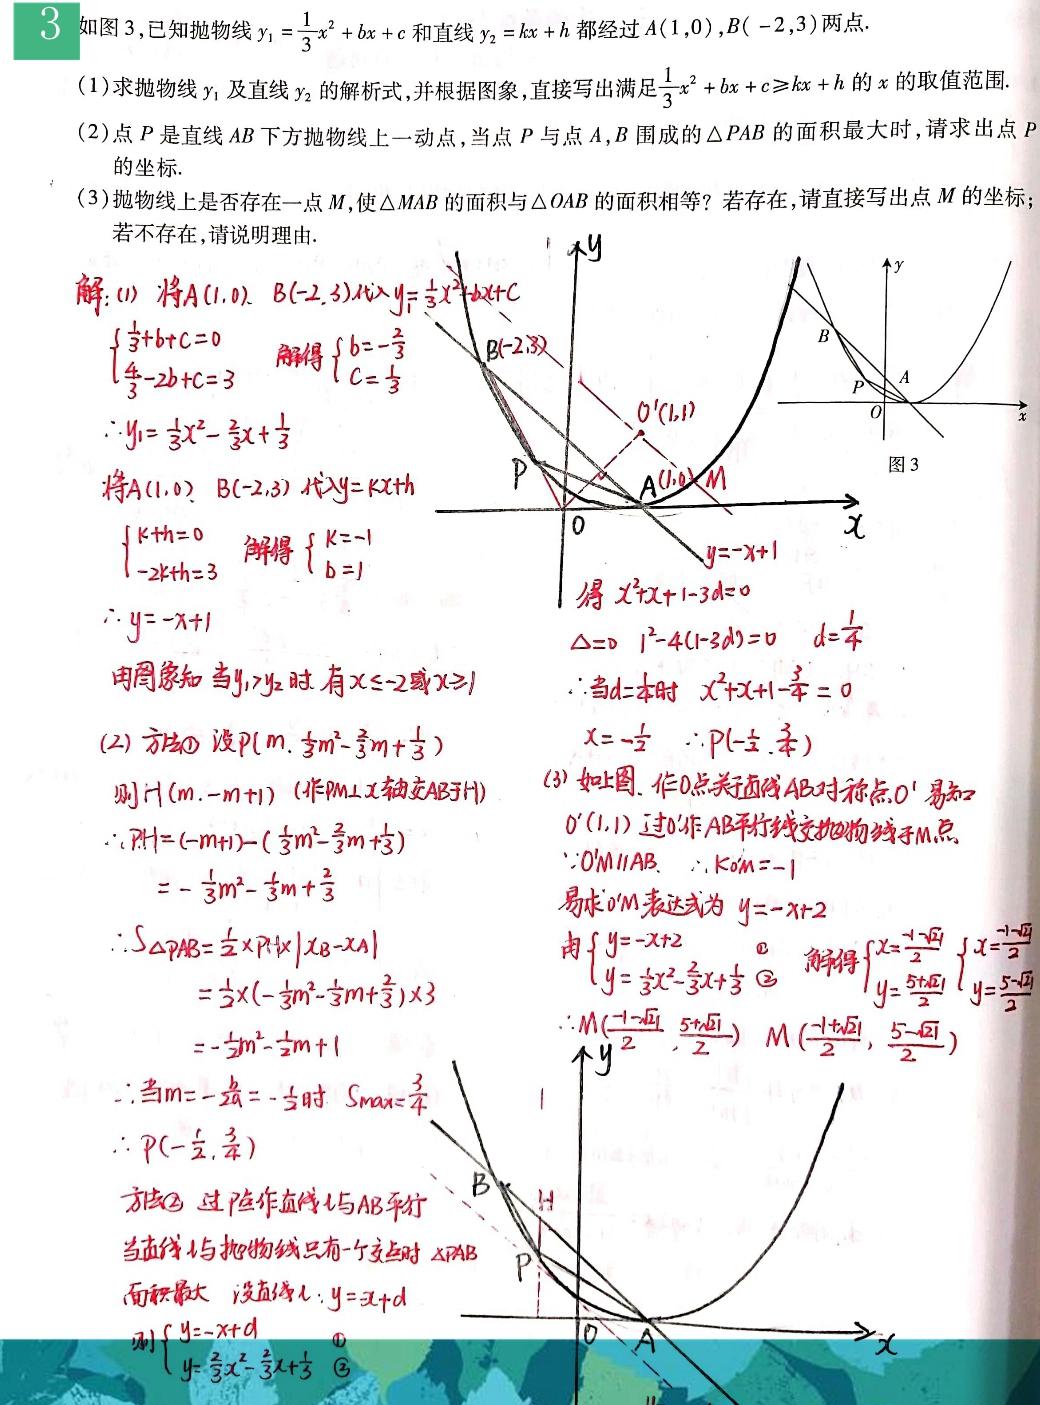 3
如图3,已知抛物线 y₁=1/3x²+bx+c 和直线 y₂=kx+h 都经过 A(1,0),B(-2,3)两点.
(1)求抛物线 y₁ 及直线 y₂ 的解析式,并根据图象,直接写出满足1/3x²+bx+c≥kx+h 的 x 的取值范围.
(2)点 P 是直线 AB 下方抛物线上一动点,当点 P 与点 A,B 围成的△PAB 的面积最大时,请求出点 P
的坐标.
(3)抛物线上是否存在一点 M,使△MAB 的面积与△OAB 的面积相等？若存在,请直接写出点 M 的坐标;
若不存在,请说明理由.
解:(1) 将A(1,0)、B(-2,3)代入y₁=1/3x²+bx+c
{1/3+b+c=0
4/3-2b+c=3
解得{b=-2/3
c=1/3
∴y₁=1/3x²-2/3x+1/3
将A(1,0)、B(-2,3)代入y=kx+h
{k+h=0
-2k+h=3
解得{k=-1
b=1
∴y=-x+1
由图象知 当y₁>y₂时 有x≤-2或x≥1
(2) 方法① 设P(m, 1/3m²-2/3m+1/3)
则H(m,-m+1) (作PM⊥x轴交AB于H)
∴PH=(-m+1)-(1/3m²-2/3m+1/3)
=-1/3m²-1/3m+2/3
∴S△PAB=1/2×PH×|xB-xA|
=1/2×(-1/3m²-1/3m+2/3)×3
=-1/2m²-1/2m+1
∴当m=-b/2a=-1/2时 Smax=3/4
∴P(-1/2,3/4)
方法② 过P点作直线l与AB平行
当直线l与抛物线只有一个交点时 △PAB
面积最大 设直线l:y=x+d
则{y=-x+d ①
y=2/3x²-2/3x+1/3 ②
y
B(-2,3)
O'(1,1)
P
A(1,0)
M
O
x
y=-x+1
y
B
P
A
O
x
图3
得 x²+x+1-3d=0
△=0 1²-4(1-3d)=0 d=1/4
∴当d=1/4时 x²+x+1-3/4=0
x=-1/2 ∴P(-1/2,3/4)
(3) 如上图、作O点关于直线AB对称点O' 易知
O'(1,1) 过O'作AB平行线交抛物线于M点
∵O'M∥AB ∴KO'M=-1
易求O'M表达式为 y=-x+2
由{y=-x+2 ①
y=1/3x²-2/3x+1/3 ②
解得{x=(-1-√21)/2
y=(5+√21)/2
{x=(-1-√21)/2
y=(5-√21)/2
∴M((-1-√21)/2, (5+√21)/2) M((-1+√21)/2, (5-√21)/2)
y
B
H
P
O
A
x